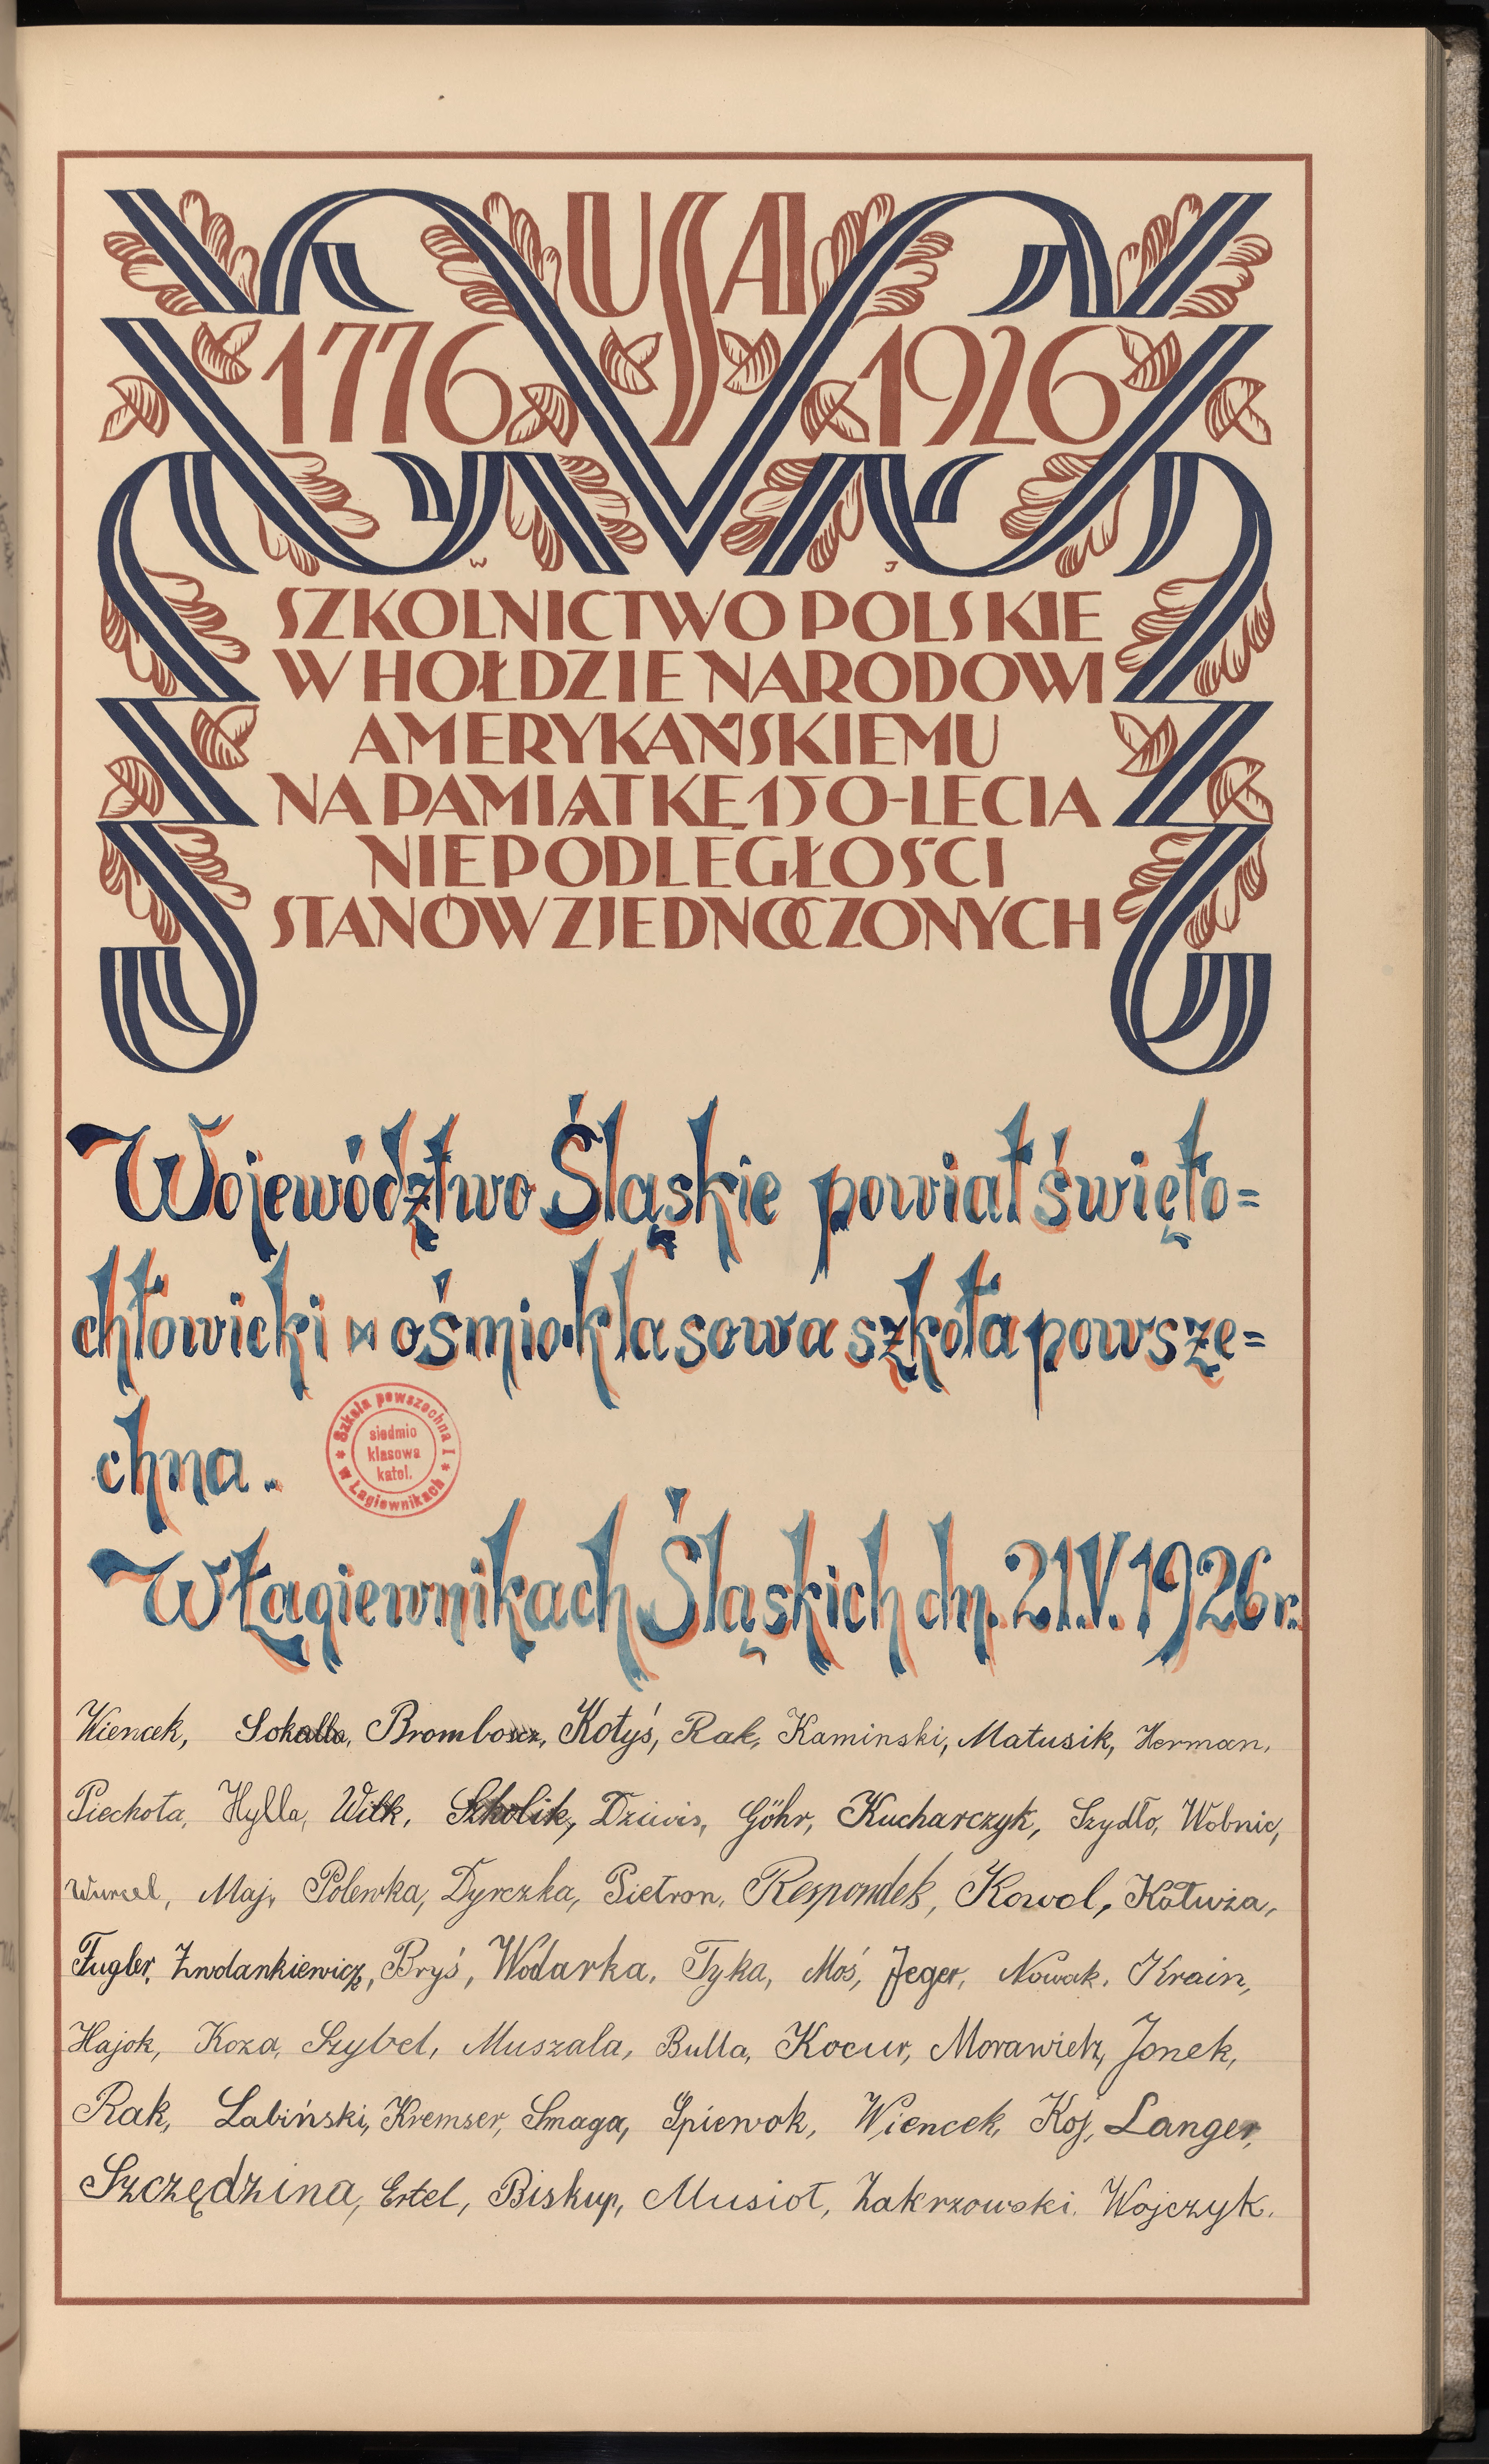 USA
1776 1926
W J
SZKOLNICTWO POLSKIE
W HOŁDZIE NARODOWI
AMERYKAŃSKIEMU
NA PAMIĄTKĘ 150-LECIA
NIEPODLEGŁOŚCI
STANÓW ZJEDNOCZONYCH
Województwo Śląskie powiat święto=
chłowicki ośmio-klasowa szkoła powsze=
chna.
Szkoła powszechna I
siedmio
klasowa
katol.
w Łagiewnikach
W Łagiewnikach Śląskich dn. 21.V.1926 r.
Wiencek, Sokalla, Brombosz, Kotyś, Rak, Kaminski, Matusik, Herman,
Piechota, Hylla, Wilk, Szkolik, Dziwis, Göhr, Kucharczyk, Szydło, Wobnic,
Wursel, Maj, Polewka, Dyrczka, Pietron, Respondek, Kowol, Kałuża,
Fugler, Zwolankiewicz, Bryś, Wodarka, Tyka, Moś, Jeger, Nowak, Krain,
Hajok, Koza, Szybel, Muszala, Bulla, Kocur, Morawietz, Jonek,
Rak, Labiński, Kremser, Smaga, Śpiewok, Wiencek, Koj, Langer,
Szczędzina, Ertel, Biskup, Musioł, Zakrzowski, Wojczyk.